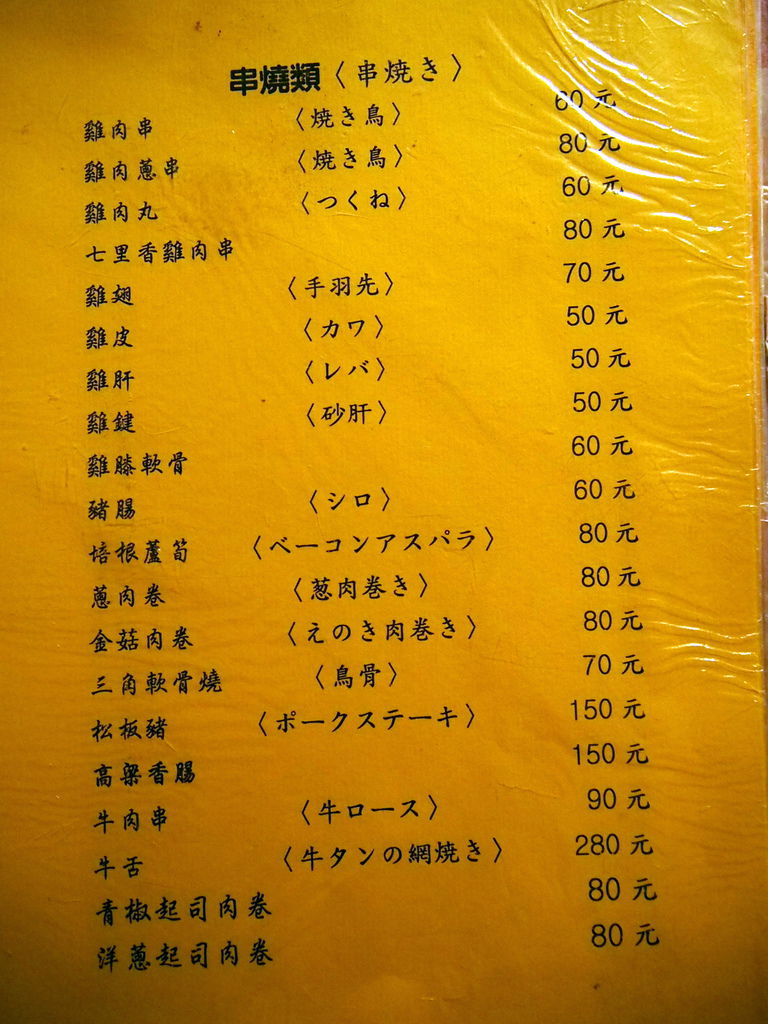 串燒類〈串焼き〉
雞肉串 〈焼き鳥〉 60元
雞肉蔥串 〈焼き鳥〉 80元
雞肉丸 〈つくね〉 60元
七里香雞肉串 80元
雞翅 〈手羽先〉 70元
雞皮 〈カワ〉 50元
雞肝 〈レバ〉 50元
雞鍵 〈砂肝〉 50元
雞膝軟骨 60元
豬腸 〈シロ〉 60元
培根蘆筍 〈ベーコンアスパラ〉 80元
蔥肉卷 〈葱肉巻き〉 80元
金菇肉卷 〈えのき肉巻き〉 80元
三角軟骨燒 〈鳥骨〉 70元
松板豬 〈ポークステーキ〉 150元
高粱香腸 150元
牛肉串 〈牛ロース〉 90元
牛舌 〈牛タンの網焼き〉 280元
青椒起司肉卷 80元
洋蔥起司肉卷 80元